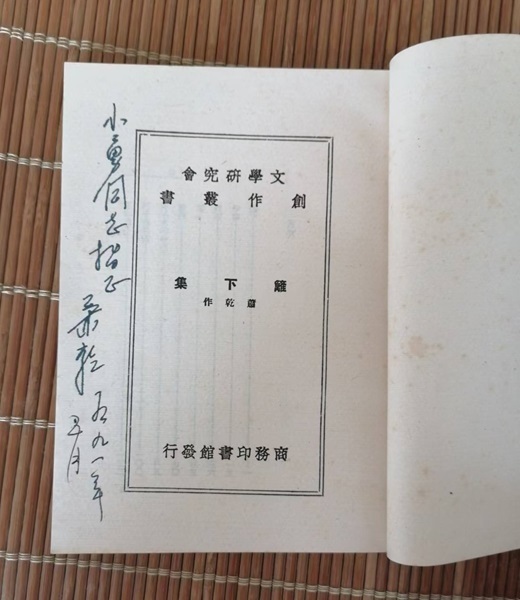 文學研究會
創作叢書
籬下集
蕭乾作
商務印書館發行
小 同志指正
萧乾 九一年
月